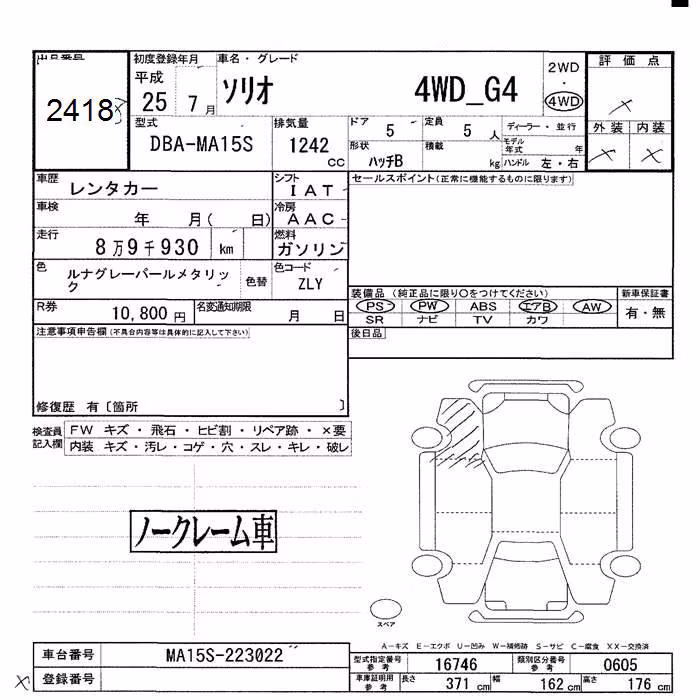 出品番号
2418
初度登録年月
平成
25 年 7 月
車名・グレード
ソリオ 4WD_G4
2WD
・
4WD
評価点
外装 内装
型式
DBA-MA15S
排気量
1242
cc
ドア 5
定員 5 人
形状 ハッチB
積載 kg
ディーラー・並行
モデル年式 年
ハンドル 左・右
車歴 レンタカー
シフト IAT
車検 年 月( 日)
冷房 AAC
走行 8万9千930 km
燃料 ガソリン
色 ルナグレーパールメタリック
色替
色コード ZLY
R券 10,800 円
名変通知期限 月 日
セールスポイント(正常に機能するものに限ります)
装備品 (純正品に限り○をつけてください)
PS PW ABS エアB AW
SR ナビ TV カワ
新車保証書
有・無
後日品
注意事項申告欄(不具合内容等は具体的に記入して下さい)
修復歴 有〔箇所 〕
検査員記入欄
FW キズ・飛石・ヒビ割・リペア跡・×要
内装 キズ・汚レ・コゲ・穴・スレ・キレ・破レ
ノークレーム車
スペア
A-キズ E-エクボ U-凹み W-補修跡 S-サビ C-腐食 XX-交換済
車台番号 MA15S-223022
登録番号
型式指定番号参考 16746
類別区分番号参考 0605
車庫証明用参考 長さ 371 cm 幅 162 cm 高さ 176 cm